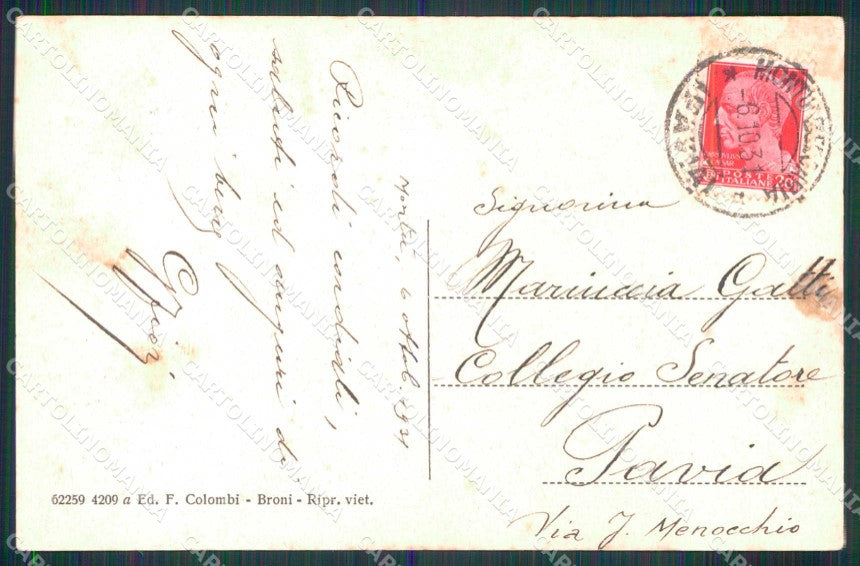 Montù, 6 ottob. 1931
Ricordi cordiali,
saluti ed auguri di
ogni bene
MONTU
PAVIA
-6.10.31
POSTE
ITALIANE
Signorina
Mariuccia Gatti
Collegio Senatore
Pavia
Via J. Menocchio
62259 4209 a Ed. F. Colombi - Broni - Ripr. viet.
CARTOLINOMANIA